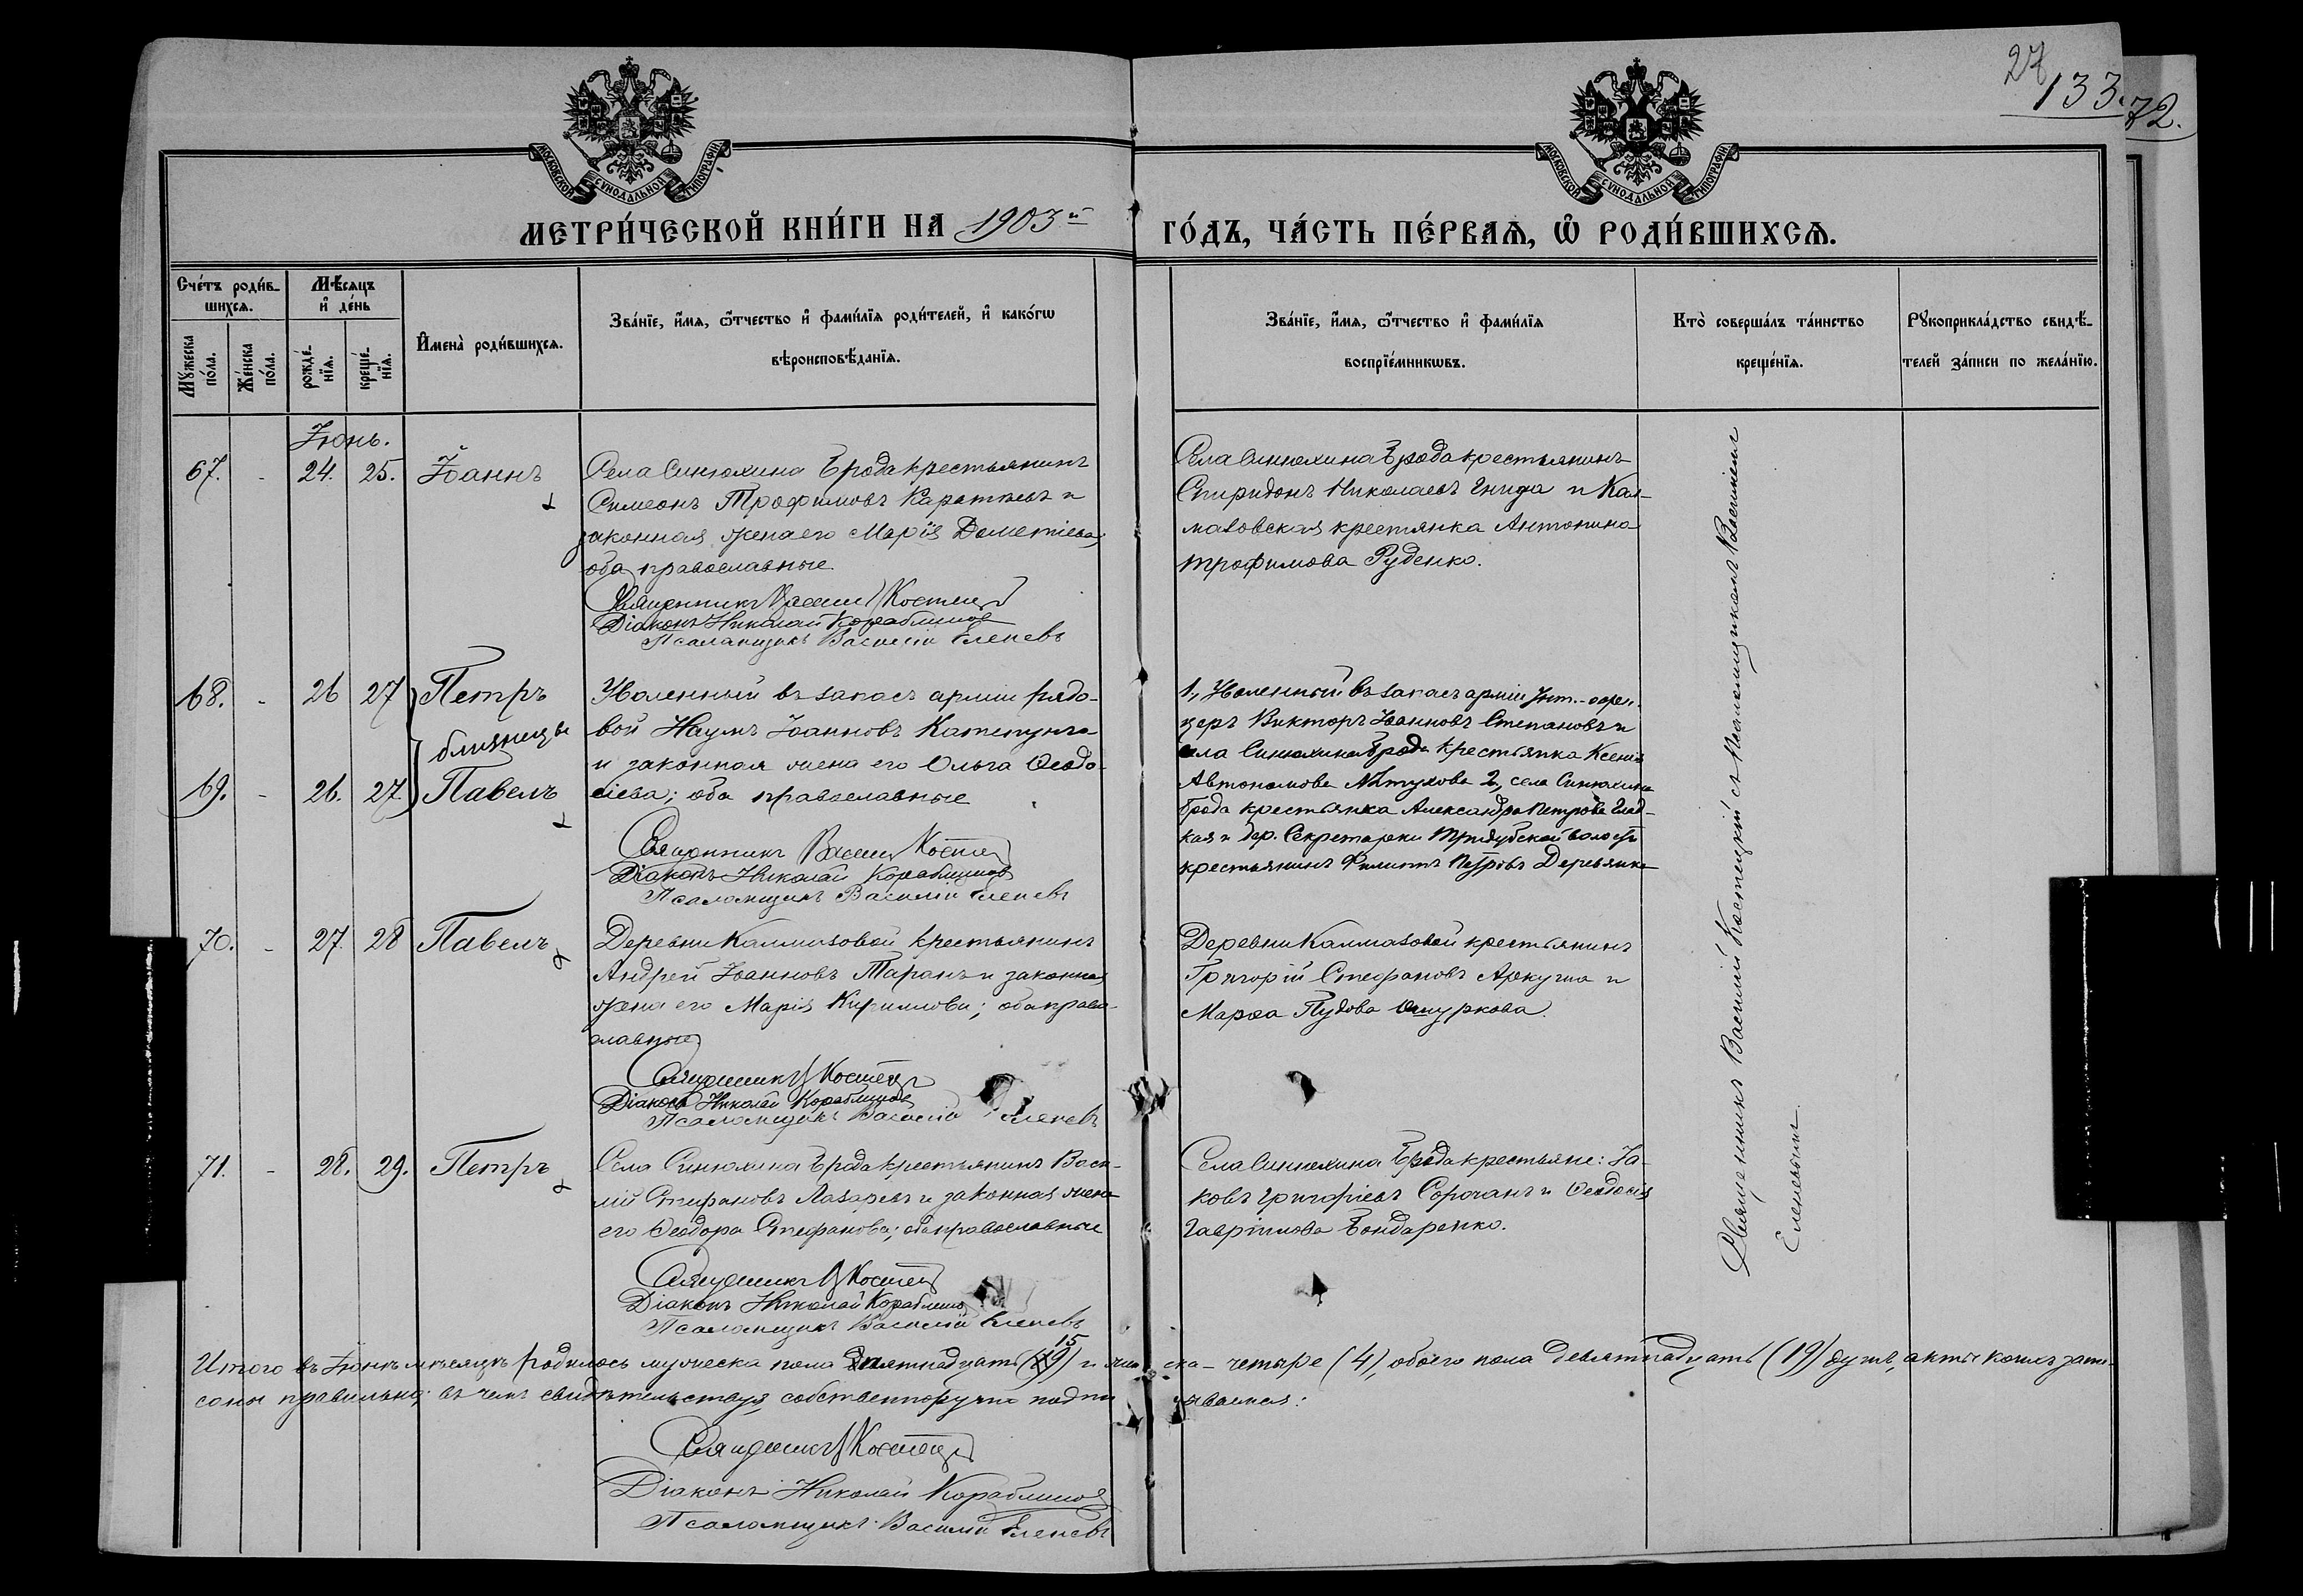 27
133.
72.
МОСКОВСКОЙ СѴНОДАЛЬНОЙ ТИПОГРАФІИ
МОСКОВСКОЙ СѴНОДАЛЬНОЙ ТИПОГРАФІИ
МЕТРИ́ЧЕСКОЙ КНИ́ГИ НА 1903й
ГО́ДЪ, ЧА́СТЬ ПЕ́РВАѦ, Ѡ РОДИ́ВШИХСѦ.
Сче́тъ роди́в-
шихсѧ.
Мѣ́сяцъ
и҆ де́нь
Мꙋ́жеска
по́ла.
Же́нска
по́ла.
рожде́-
нїѧ.
креще́-
нїѧ.
И҆мена̀ роди́вшихсѧ.
Зва́нїе, и҆́мѧ, ѻ҆́тчество и҆ фами́лїѧ роди́телей, и҆ како́гѡ
вѣроисповѣ́данїѧ.
Зва́нїе, и҆́мѧ, ѻ҆́тчество и҆ фами́лїѧ
воспрїе́мникѡвъ.
Кто̀ соверша́лъ та́инство
креще́нїѧ.
Рꙋкоприкла́дство свидѣ́-
телей за́писи по жела́нїю.
Іюнь.
67. - 24. 25. Іоаннъ
Села Синюхина Брода крестьянинъ
Симеонъ Трофимовъ и
законная жена его Марія Дометіева;
оба православные
Священникъ Василій Костец
Діаконъ Николай Кораблиновъ
Псаломщикъ Василій Еленевъ
Села Синюхина Брода крестьянинъ
Спиридонъ Николаевъ Гнида и Кал-
мазовская крестянка Антонина
Трофимова Руденко.
68. - 26 27 Петръ
близнецы
69. - 26. 27. Павелъ
Уволенный въ запасъ арміи рядо-
вой Наумъ Іоанновъ
и законная жена его Ольга Ѳеодо-
сіева; оба православные
Священникъ Василій Костец
Діаконъ Николай Кораблиновъ
Псаломщикъ Василій Еленевъ
1, Уволенный въ запасъ арміи Унт.-офи-
церъ Викторъ Іоанновъ Степановъ и
села Синюхина Брода крестьянка Ксенія
Автономова Пѣтухова 2, села Синюхина
Брода крестьянка Александра Петрова Глад-
кая и дер. Секретарки Тридубской волости
крестьянинъ Филиппъ Петровъ Деревянко
70. - 27. 28 Павелъ
Деревни Калмазовой крестьянинъ
Андрей Іоанновъ Таранъ и законная
жена его Марія Кириллова; оба право-
славные
Священникъ В Костец
Діаконъ Николай Кораблиновъ
Псаломщикъ Василій Еленевъ
Деревни Калмазовой крестьянинъ
Григорій Стефановъ и
Марѳа Пудова
71. - 28. 29. Петръ
Села Синюхина Брода крестьянинъ Васи-
лій Стефановъ Лазаревъ и законная жена
его Ѳеодора Стефанова; оба православные
Священникъ В Костец
Діаконъ Николай Кораблиновъ
Псаломщикъ Василій Еленевъ
Села Синюхина Брода крестьяне: Іа-
ковъ Григоріевъ Сорочанъ и Ѳеодосія
Гавріилова Бондаренко.
Священникъ Василій Костецкій съ Псаломщикомъ Василіемъ
Еленевымъ.
Итого въ Іюнѣ мѣсяцѣ родилось мужеска пола пятнадцать (15) и женска - четыре (4), обоего пола девятнадцать (19) душъ, акты коихъ запи-
саны правильно; въ чемъ свидѣтельствуя, собственноручно подписываемся:
Священникъ В Костец
Діаконъ Николай Кораблиновъ
Псаломщикъ Василій Еленевъ